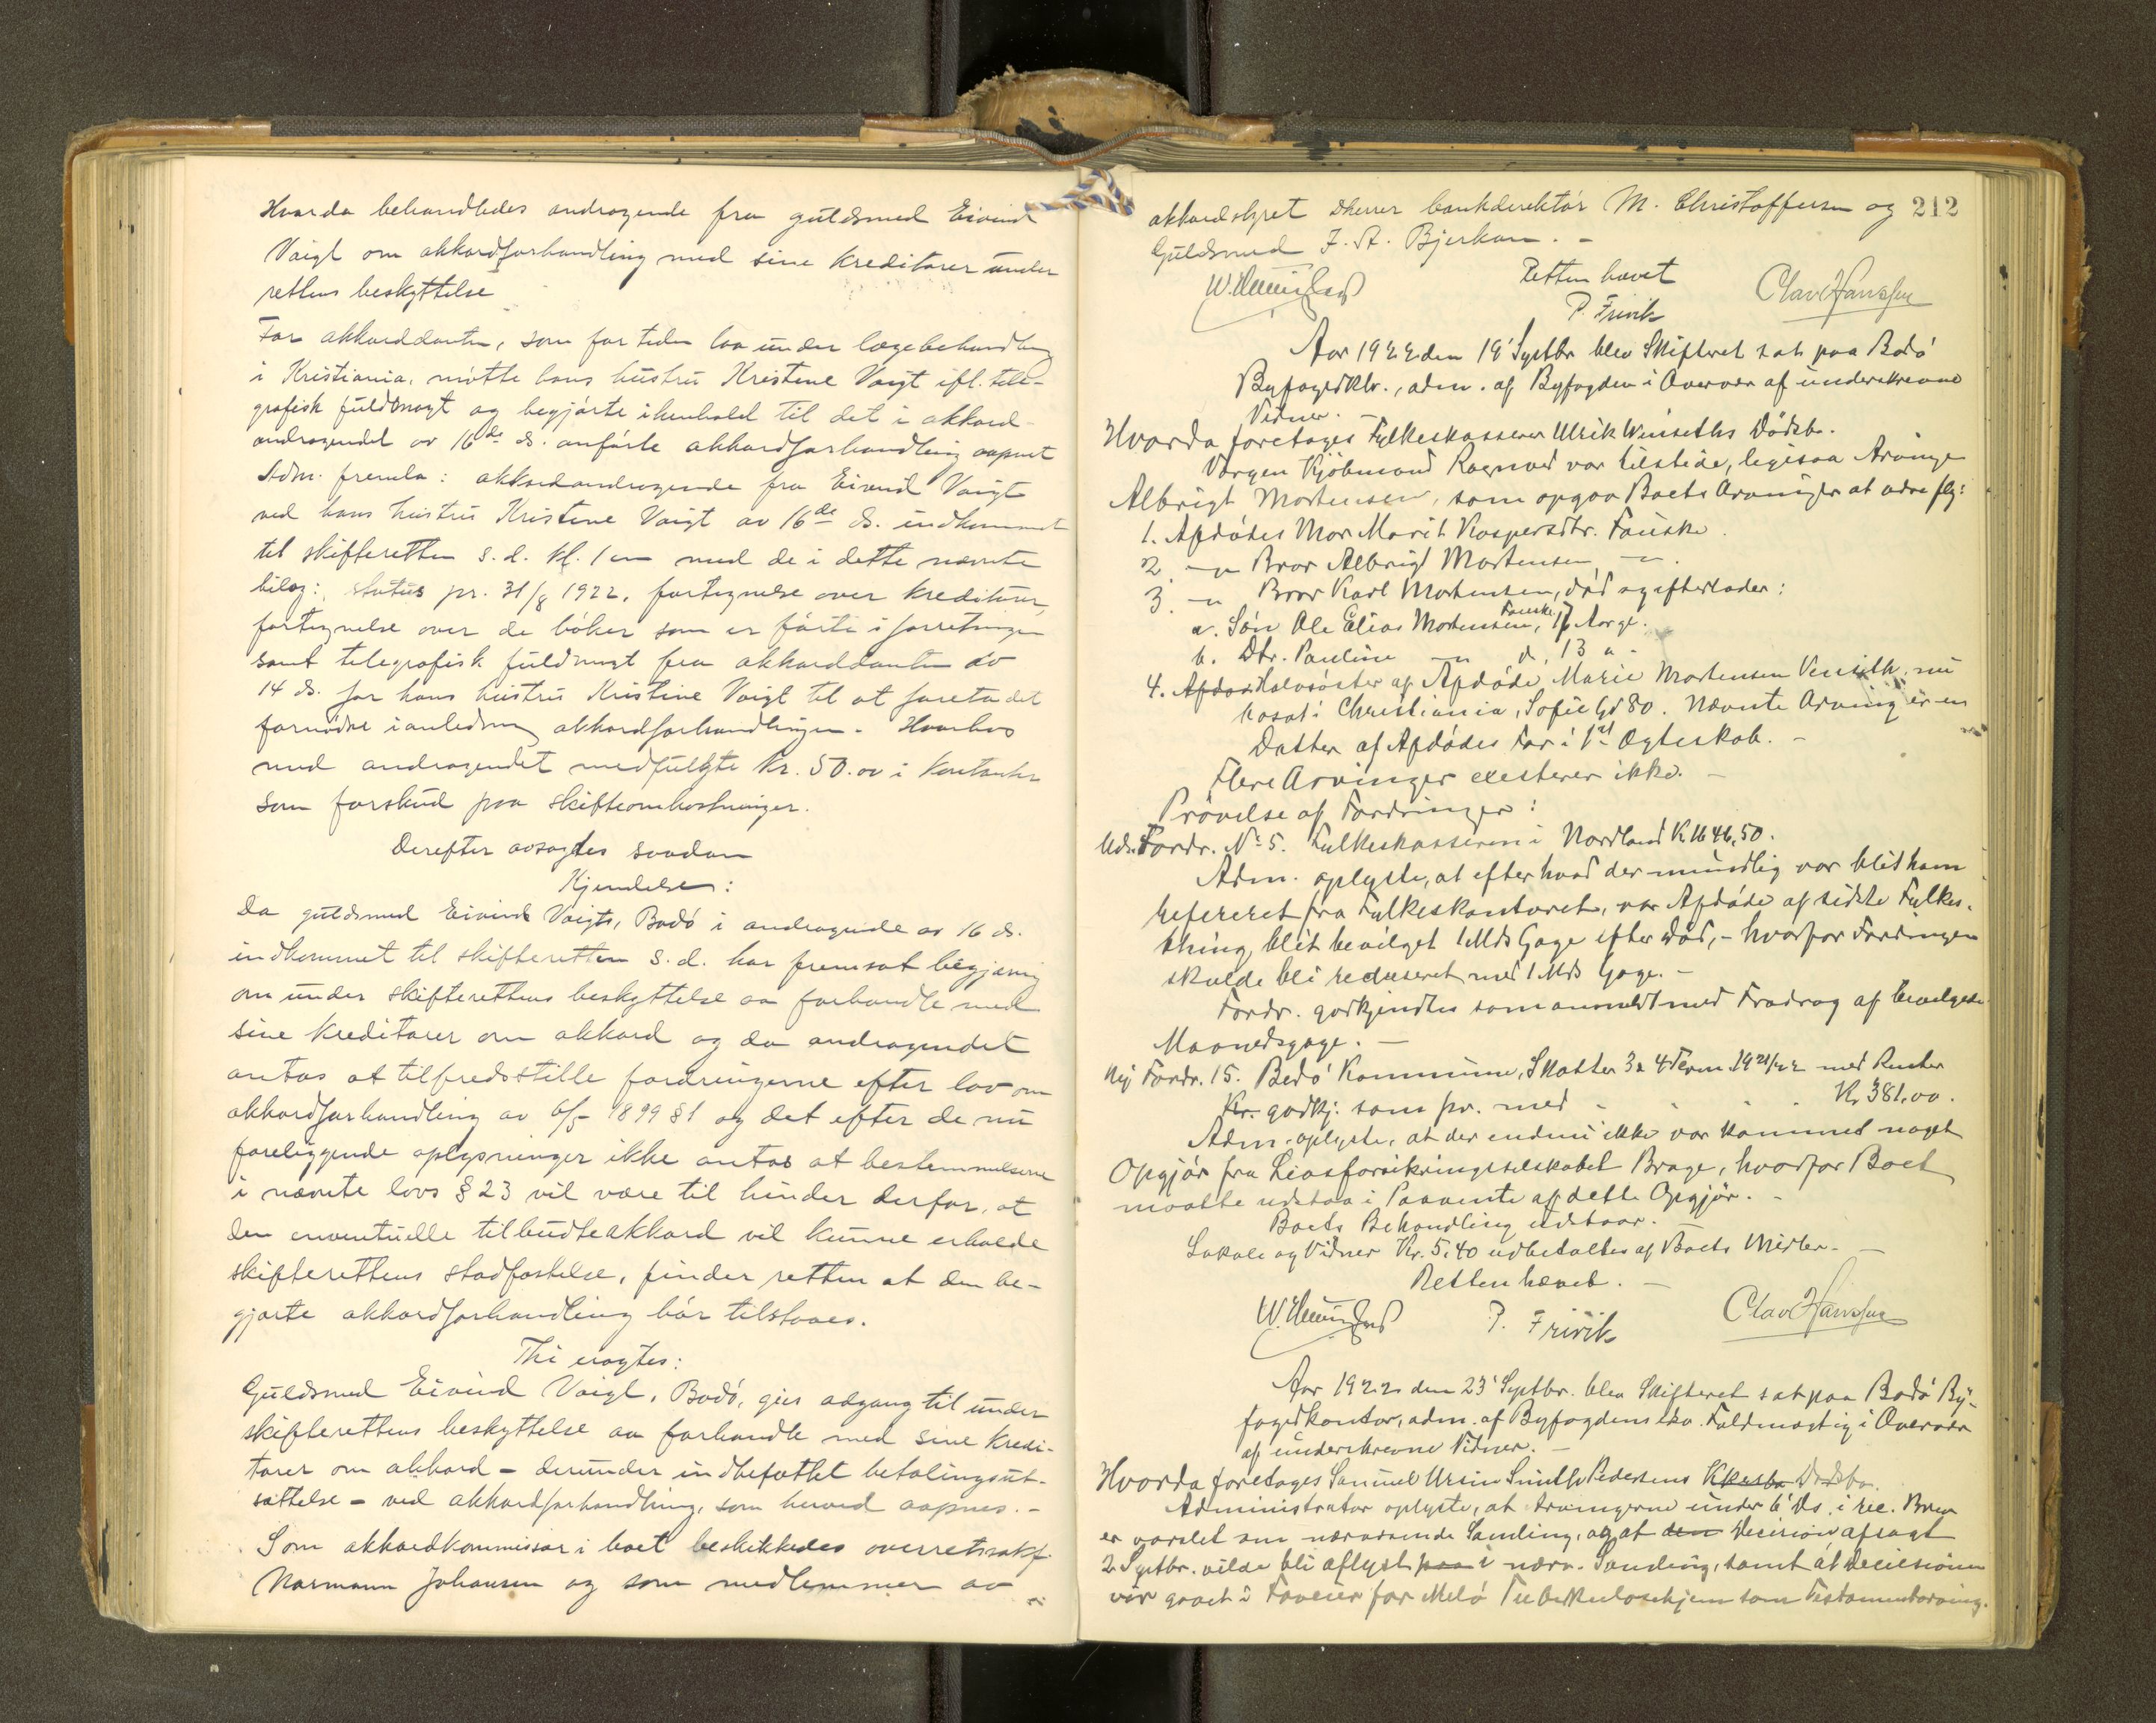 Hvorda behandledes andragende fra guldsmed Eivind
Voigt om akkordforhandling med sine kreditorer under
rettens beskyttelse
For akkorddanten, som for tiden laa under lægebehandling
i Kristiania, møtte hans hustru Kristine Voigt ifl. tele-
grafisk fuldmagt og begjærte i henhold til det i akkord-
andragendet av 16de ds. anførte akkordforhandling aapnet
Adm. fremla: akkordandragende fra Eivind Voigt
ved hans hustru Kristine Voigt av 16de ds. indkommet
til skifteretten s.d. kl. 1 em med de i dette nævnte
bilag: status pr. 31/8 1922, fortegnelse over kreditorer,
fortegnelse over de bøker som er førte i forretningen
samt telegrafisk fuldmagt fra akkorddanten av
14 ds. for hans hustru Kristine Voigt til at foreta det
fornødne i anledning akkordforhandlingen. Hvorhos
med andragendet medfulgte kr. 50.00 i kontanter
som forskud paa skifteomkostninger.
Derefter avsagdes saadan
Kjendelse:
Da guldsmed Eivind Voigt, Bodø i andragende av 16 ds.
indkommet til skifteretten s.d. har fremsat begjæring
om under skifterettens beskyttelse aa forhandle med
sine kreditorer om akkord og da andragendet
antas at tilfredsstille fordringerne efter lov om
akkordforhandling av 6/5 1899 § 1 og det efter de nu
foreliggende oplysninger ikke antas at bestemmelserne
i nævnte lovs § 23 vil være til hinder derfor, at
den eventuelle tilbudte akkord vil kunne erholde
skifterettens stadfæstelse, finder retten at den be-
gjærte akkordforhandling bør tilstaaes.
Thi eragtes:
Guldsmed Eivind Voigt, Bodø, gies adgang til under
skifterettens beskyttelse aa forhandle med sine kredi-
torer om akkord - derunder indbefattet betalingsut-
sættelse - ved akkordforhandling, som herved aapnes. -
Som akkordkommissær i boet beskikkedes overretssakf.
Normann Johansen og som medlemmer av
212
akkordstyret d'herrer bankdirektør M. Christoffersen og
Guldsmed J. A. Bjerkan. -
Retten hævet
P. Frivik
Olav Hanssen
Aar 1922 den 19' Septbr blev Skifteret sat paa Bodø
Byfogedktr., adm. af Byfogden i Overvær af underskrevne
Vidner. -
Hvorda foretoges Fylkeskasserer Ulrik Wenseths Dødsbo.
Værgen Kjøbmand Rognved var tilstede, ligesaa Arving
Albrigt Mortensen, som opgav Boets Arvinger at være flg:
1. Afdødes Mor Marit Kaspersdtr. Fauske.
2. -"- Bror Albrigt Mortensen, -"-
3. -"- Bror Karl Mortensen, død og efterlader:
a. Søn Ole Elias Mortensen, Fauske, 17 Aar gl.
b. Dtr. Pauline -"- d, 13 " -
4. Afdødes Halvsøster af Afdøde Marie Mortensen Venseth, nu
bosat i Christiania, Sofie Gd 80. Nævnte Arving er en
Datter af Afdødes Far i 1ste Ægteskab. -
Flere Arvinger existerer ikke. -
Prøvelse af Fordringer:
Uds. Fordr. No 5. Fylkeskassereren i Nordland Kr. 1646,50.
Adm. oplyste, at efter hvad der mundtlig var blit ham
refereret fra Fylkeskontoret, var Afdøde af sidste Fylkes-
thing blit bevilget 1 Mds Gage efter Død, - hvorfor Fordringen
skulde bli reduseret med 1 Mds Gage. -
Fordr. godkjendtes som anmeldt med Fradrag af bevilgede
Maanedsgage. -
Ny Fordr. 15. Bodø Kommune, Skatter 3 & 4 Term 1921/22 med Renter
Kr. godkj. som pr. med - - - Kr. 381.00.
Adm. oplyste, at der endnu ikke var kommet noget
Opgjør fra Livsforsikringsselskabet Brage, hvorfor Boet
maatte udstaa i Paavente af dette Opgjør. -
Boets Behandling udstaar. -
Lokale og Vidner Kr. 5,40 udbetaltes af Boets Midler. -
Retten hævet. -
P. Frivik
Olav Hanssen
Aar 1922 den 23' Septbr. blev Skifteret sat paa Bodø By-
fogedkontor, adm. af Byfogdens edsv. Fuldmægtig i Overvær
af underskrevne Vidner. -
Hvorda foretoges Samuel Ursin Smith Pedersens Dødsbo.
Administrator oplyste, at Arvingerne under 6' ds. i rec. Brev
er varslet om nærværende Samling, og at den Decision afsagt
2 Septbr. vilde bli aflyst paa i nærv. Samling, samt at Decisionen
var gaaet i Faveur for Melø Tuberkulosehjem som Testamentarving.